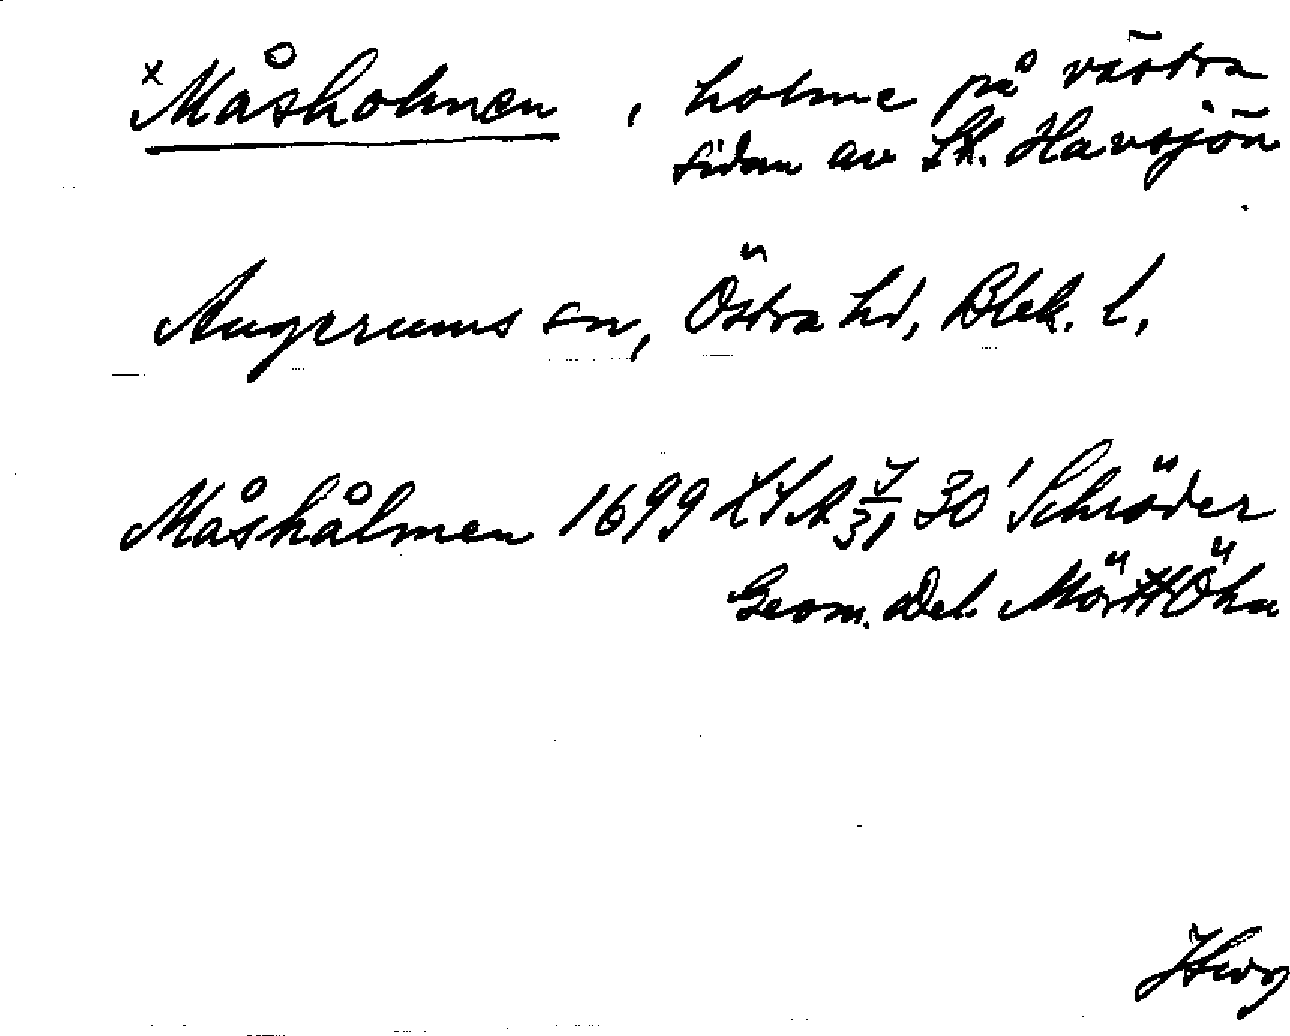 x Måsholmen, holme på västra
sidan av St. Havsjön
Augerums sn, Östra hd, Blek. l.
Måshålmen 1699 LSA 7/31 30' Schröder
Geom. Del.